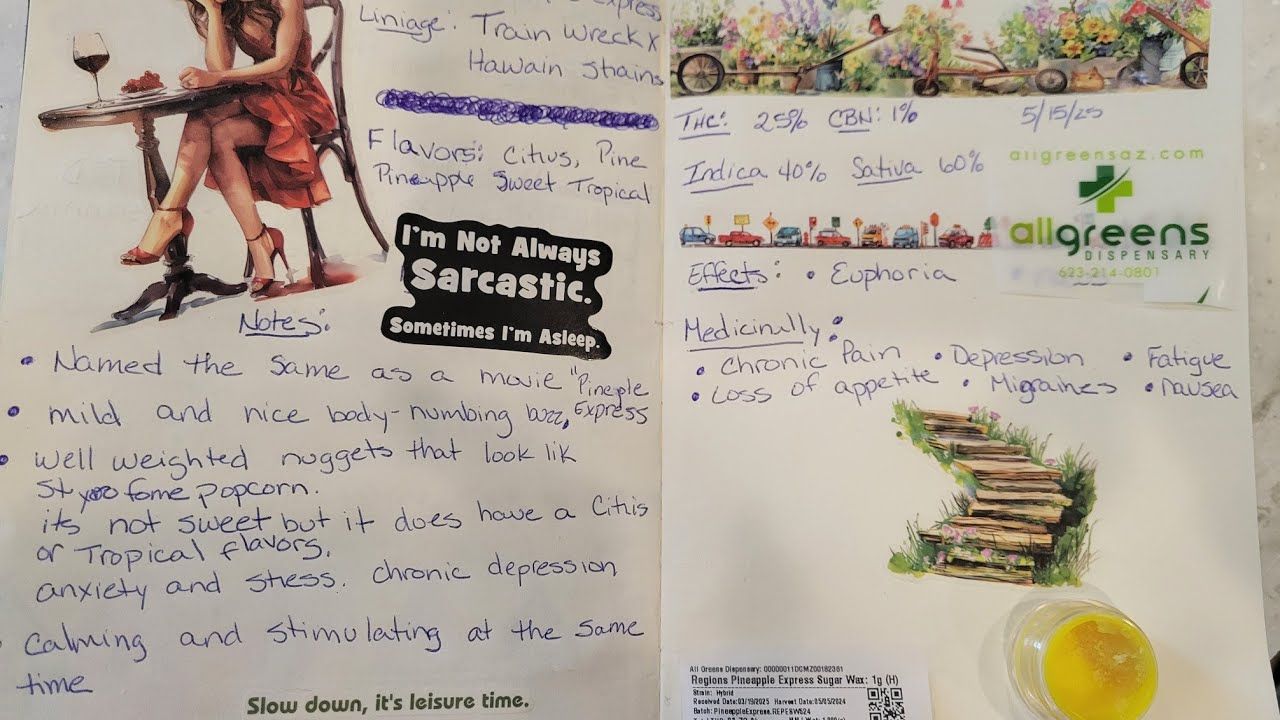 Express
Liniage: Train Wreck x
Hawain Strains
Flavors: Citius, Pine
Pineapple Sweet Tropical
I'm Not Always
Sarcastic.
Sometimes I'm Asleep.
Notes:
• Named the same as a movie "Pineple
Express
• mild and nice body-numbing buzz,
• well weighted nuggets that look lik
fome popcorn.
its not sweet but it does have a Citis
or Tropical flavors.
anxiety and stress. chronic depression
Calming and stimulating at the same
time
Slow down, it's leisure time.
THC: 25% CBN: 1% 5/15/25
Indica 40% Sativa 60%
allgreensaz.com
allgreens
DISPENSARY
623-214-0801
Effects: • Euphoria
Medicinally:
• Chronic Pain • Depression • Fatigue
• Loss of appetite • Migraines • nausea
All Greens Dispensary: 00000011DCMZ00182361
Regions Pineapple Express Sugar Wax: 1g (H)
Strain: Hybrid
Received Date:03/19/2025 Harvest Date:05/05/2024
Batch: PineappleExpress.REPESW524